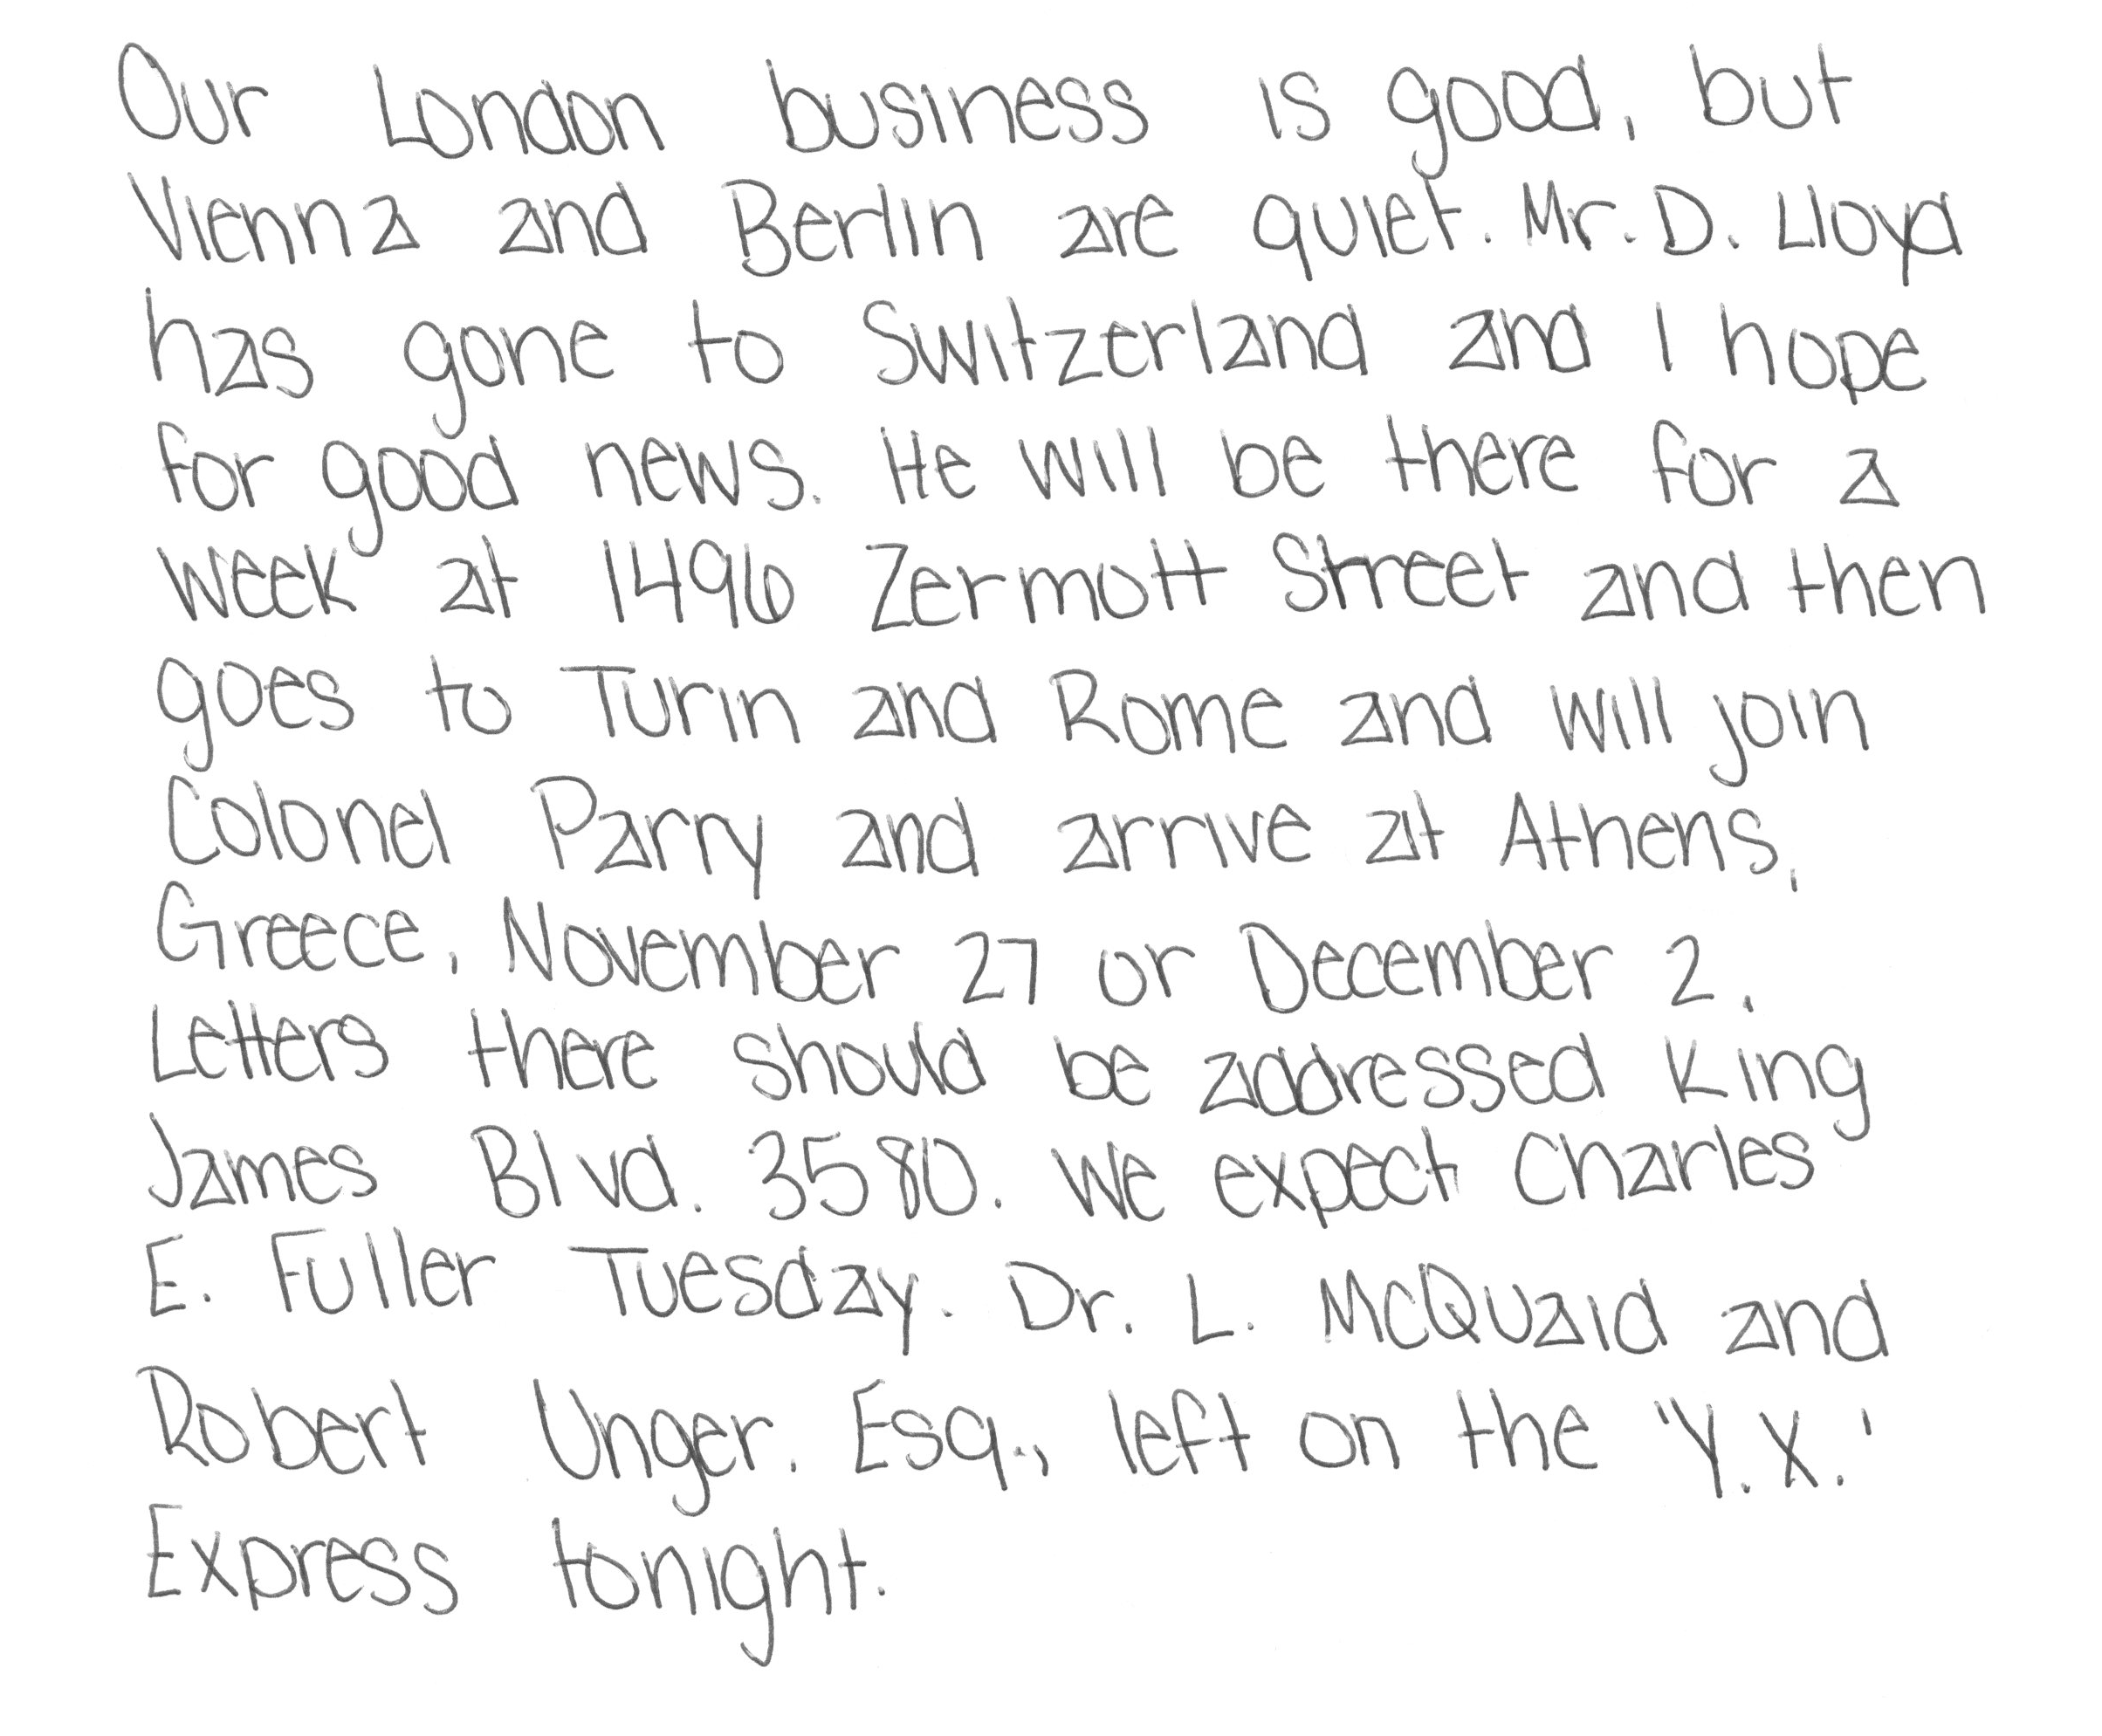 Our London business is good, but
Vienna and Berlin are quiet. Mr. D. Lloyd
has gone to Switzerland and I hope
for good news. He will be there for a
week at 1496 Zermott Street and then
goes to Turin and Rome and will join
Colonel Parry and arrive at Athens,
Greece, November 27 or December 2.
Letters there should be addressed King
James Blvd. 3580. We expect Charles
E. Fuller Tuesday. Dr. L. McQuaid and
Robert Unger, Esq., left on the 'Y.X.'
Express tonight.